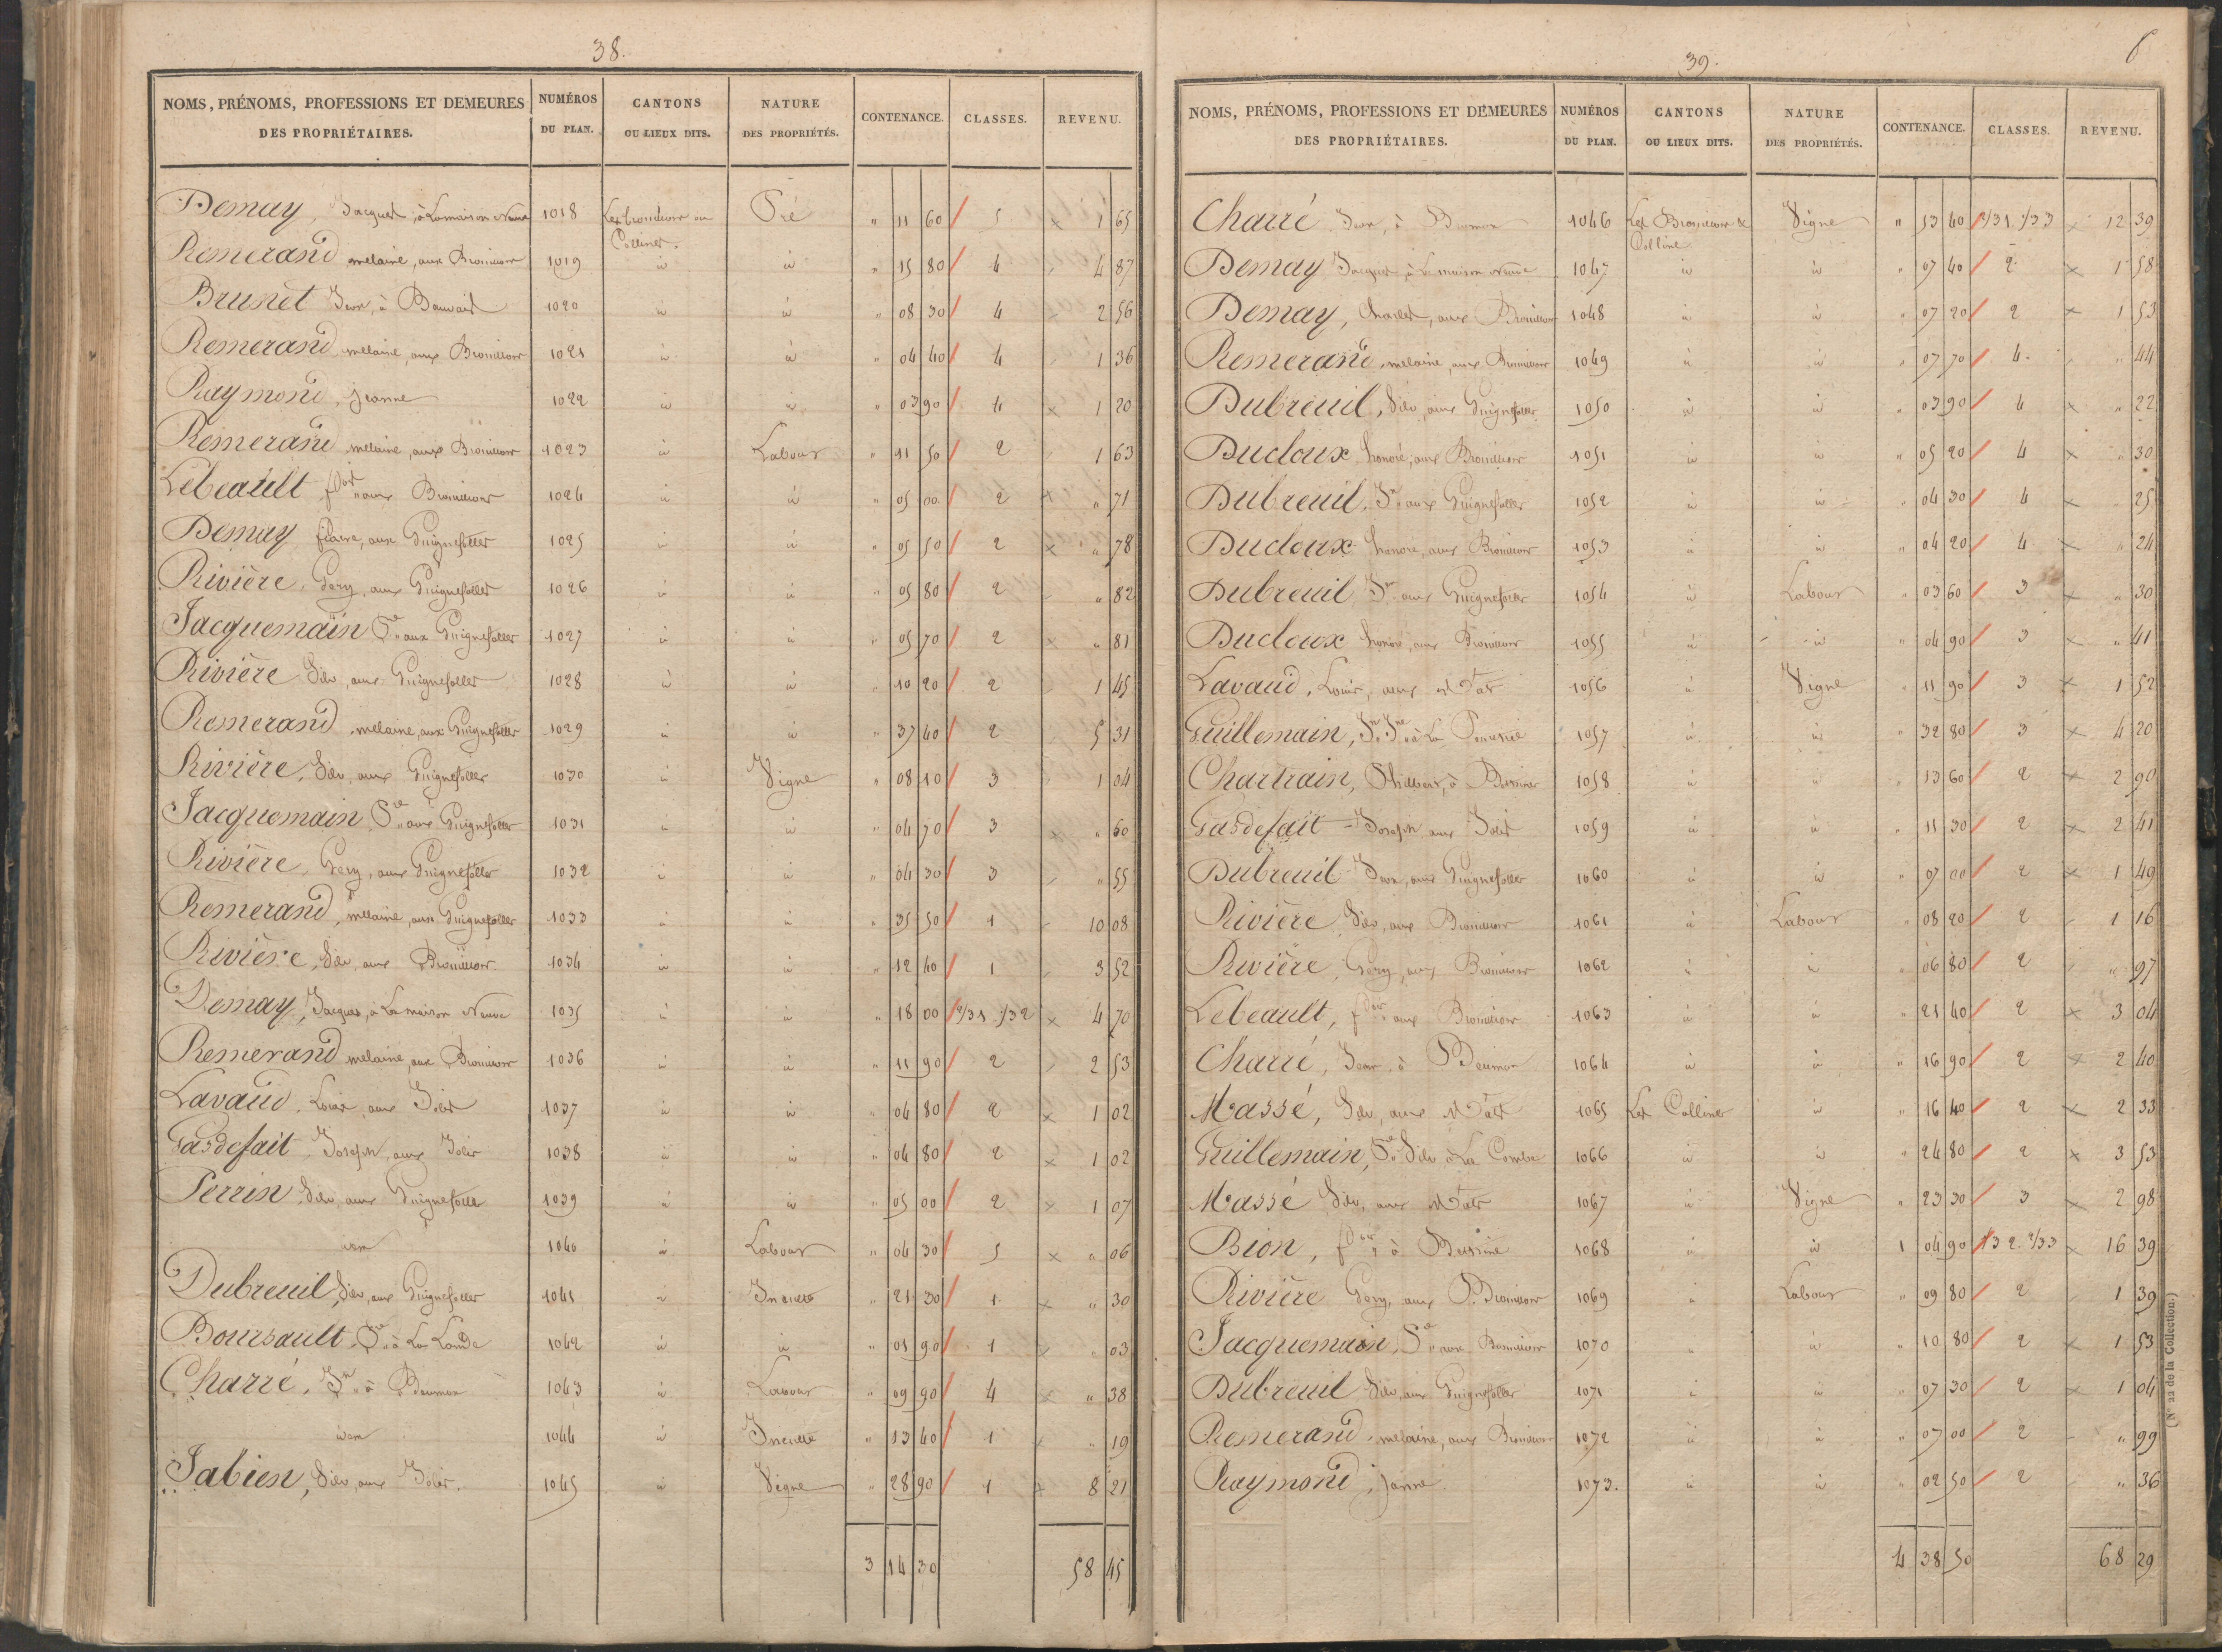 38.
NOMS, PRÉNOMS, PROFESSIONS ET DEMEURES DES PROPRIÉTAIRES. NUMÉROS DU PLAN. CANTONS OU LIEUX DITS. NATURE DES PROPRIÉTÉS. CONTENANCE. CLASSES. REVENU.
Demay, Jacques, à Lamaison Neuve 1018 Les Brouillons ou Collines. Pré " 11 60 5 1 65
Remerand melaine, aux Brouillons 1019 id id " 15 80 4 4 87
Brunet Jean, à Bauvais 1020 id id " 08 30 4 2 56
Remerand melaine, aux Brouillons 1021 id id " 04 40 4 1 36
Raymond, jeanne 1022 id id " 03 90 4 1 20
Remerand melaine, aux Brouillons 1023 id Labour " 11 50 2 1 63
Lebeault, aux Brouillons 1024 id id " 05 00 2 " 71
Demay fiacre, aux Guignefolles 1025 id id " 05 50 2 " 78
Rivière, Gery, aux Guignefolles 1026 id id " 05 80 2 " 82
Jacquemain Pre aux Guignefolles 1027 id id " 05 70 2 " 81
Rivière Silv, aux Guignefolles 1028 id id " 10 20 2 1 45
Remerand, melaine, aux Guignefolles 1029 id id " 37 40 2 5 31
Rivière, Silv, aux Guignefolles 1030 id Vigne " 08 10 3 1 04
Jacquemain Pre aux Guignefolles 1031 id id " 04 70 3 " 60
Rivière, Gery, aux Guignefolles 1032 id id " 04 30 3 " 55
Remerand, melaine, aux Guignefolles 1033 id id " 35 50 1 10 08
Rivière, Silv, aux Brouillons 1034 id id " 12 40 1 3 52
Demay, Jacques, à La maison Neuve 1035 id id " 18 00 2/3 1. 1/3 2 4 70
Remerand melaine, aux Brouillons 1036 id id " 11 90 2 2 53
Lavaud, Louis, aux Jolis 1037 id id " 04 80 2 1 02
Gasdefait, Joseph, aux Jolis 1038 id id " 04 80 2 1 02
Perrin, Silv, aux Guignefolles 1039 id id " 05 00 2 1 07
idem 1040 id Labour " 04 30 5 " 06
Dubreuil, Silv, aux Guignefolles 1041 id Inculte " 21 30 1 " 30
Boursault, Pre à La Lande 1042 id id " 01 90 1 " 03
Charré, Jn à 1043 id Labour " 09 90 4 " 38
idem 1044 id Inculte " 13 40 1 " 19
Jabien, Silv, aux Jolis. 1045 id Vigne " 28 90 1 8 21
3 14 30 58 45
39.
6
NOMS, PRÉNOMS, PROFESSIONS ET DEMEURES DES PROPRIÉTAIRES. NUMÉROS DU PLAN. CANTONS OU LIEUX DITS. NATURE DES PROPRIÉTÉS. CONTENANCE. CLASSES. REVENU.
Charré Jean, à 1046 Les Brouillons & Colline Vigne " 53 40 12 39
Demay Jacques, à La maison Neuve 1047 id id " 07 40 2 1 58
Demay, Charles, aux Brouillons 1048 id id " 07 20 2 1 53
Remerand, melaine, aux Brouillons 1049 id id " 07 70 4 " 44
Dubreuil, Silv, aux Guignefolles 1050 id id " 03 90 4 " 22
Ducloux honoré, aux Brouillons 1051 id id " 05 20 4 " 30
Dubreuil, Jn aux Guignefolles 1052 id id " 04 30 4 " 25
Ducloux honoré, aux Brouillons 1053 id id " 04 20 4 " 24
Dubreuil Jn aux Guignefolles 1054 id Labour " 03 60 3 " 30
Ducloux honoré, aux Brouillons 1055 id id " 04 90 3 " 41
Lavaud, Louis, aux 1056 id Vigne " 11 90 3 1 52
Guillemain, à La 1057 id id " 32 80 3 4 20
Chartrain, à 1058 id " " 13 60 2 2 90
Gasdefait Joseph aux Jolis 1059 id id " 11 30 2 2 41
Dubreuil Jean, aux Guignefolles 1060 id id " 07 00 2 1 49
Rivière Silv, aux Brouillons 1061 id Labour " 08 20 2 1 16
Rivière, Gery, aux Brouillons 1062 id id " 06 80 2 " 97
Lebeault, aux Brouillons 1063 id id " 21 40 2 3 04
Charré, Jean, à 1064 id id " 16 90 2 2 40
Massé, Silv, aux 1065 Les Collines id " 16 40 2 2 33
Guillemain, Pre Silv à La Combe 1066 id id " 24 80 2 3 53
Massé Silv, aux 1067 id Vigne " 23 30 3 2 98
Bion, à 1068 id id 1 04 90 1/3 2. 2/3 3 16 39
Rivière Gery, aux Brouillons 1069 " Labour " 09 80 2 1 39
Jacquemain, Pre aux Brouillons 1070 " id " 10 80 2 1 53
Dubreuil Silv, aux Guignefolles 1071 id id " 07 30 2 1 04
Remerand, melaine, aux Brouillons 1072 id id " 07 00 2 " 99
Raymond, Janne 1073. id id " 02 50 2 " 36
4 38 50 68 29
(No 22 de la Collection.)